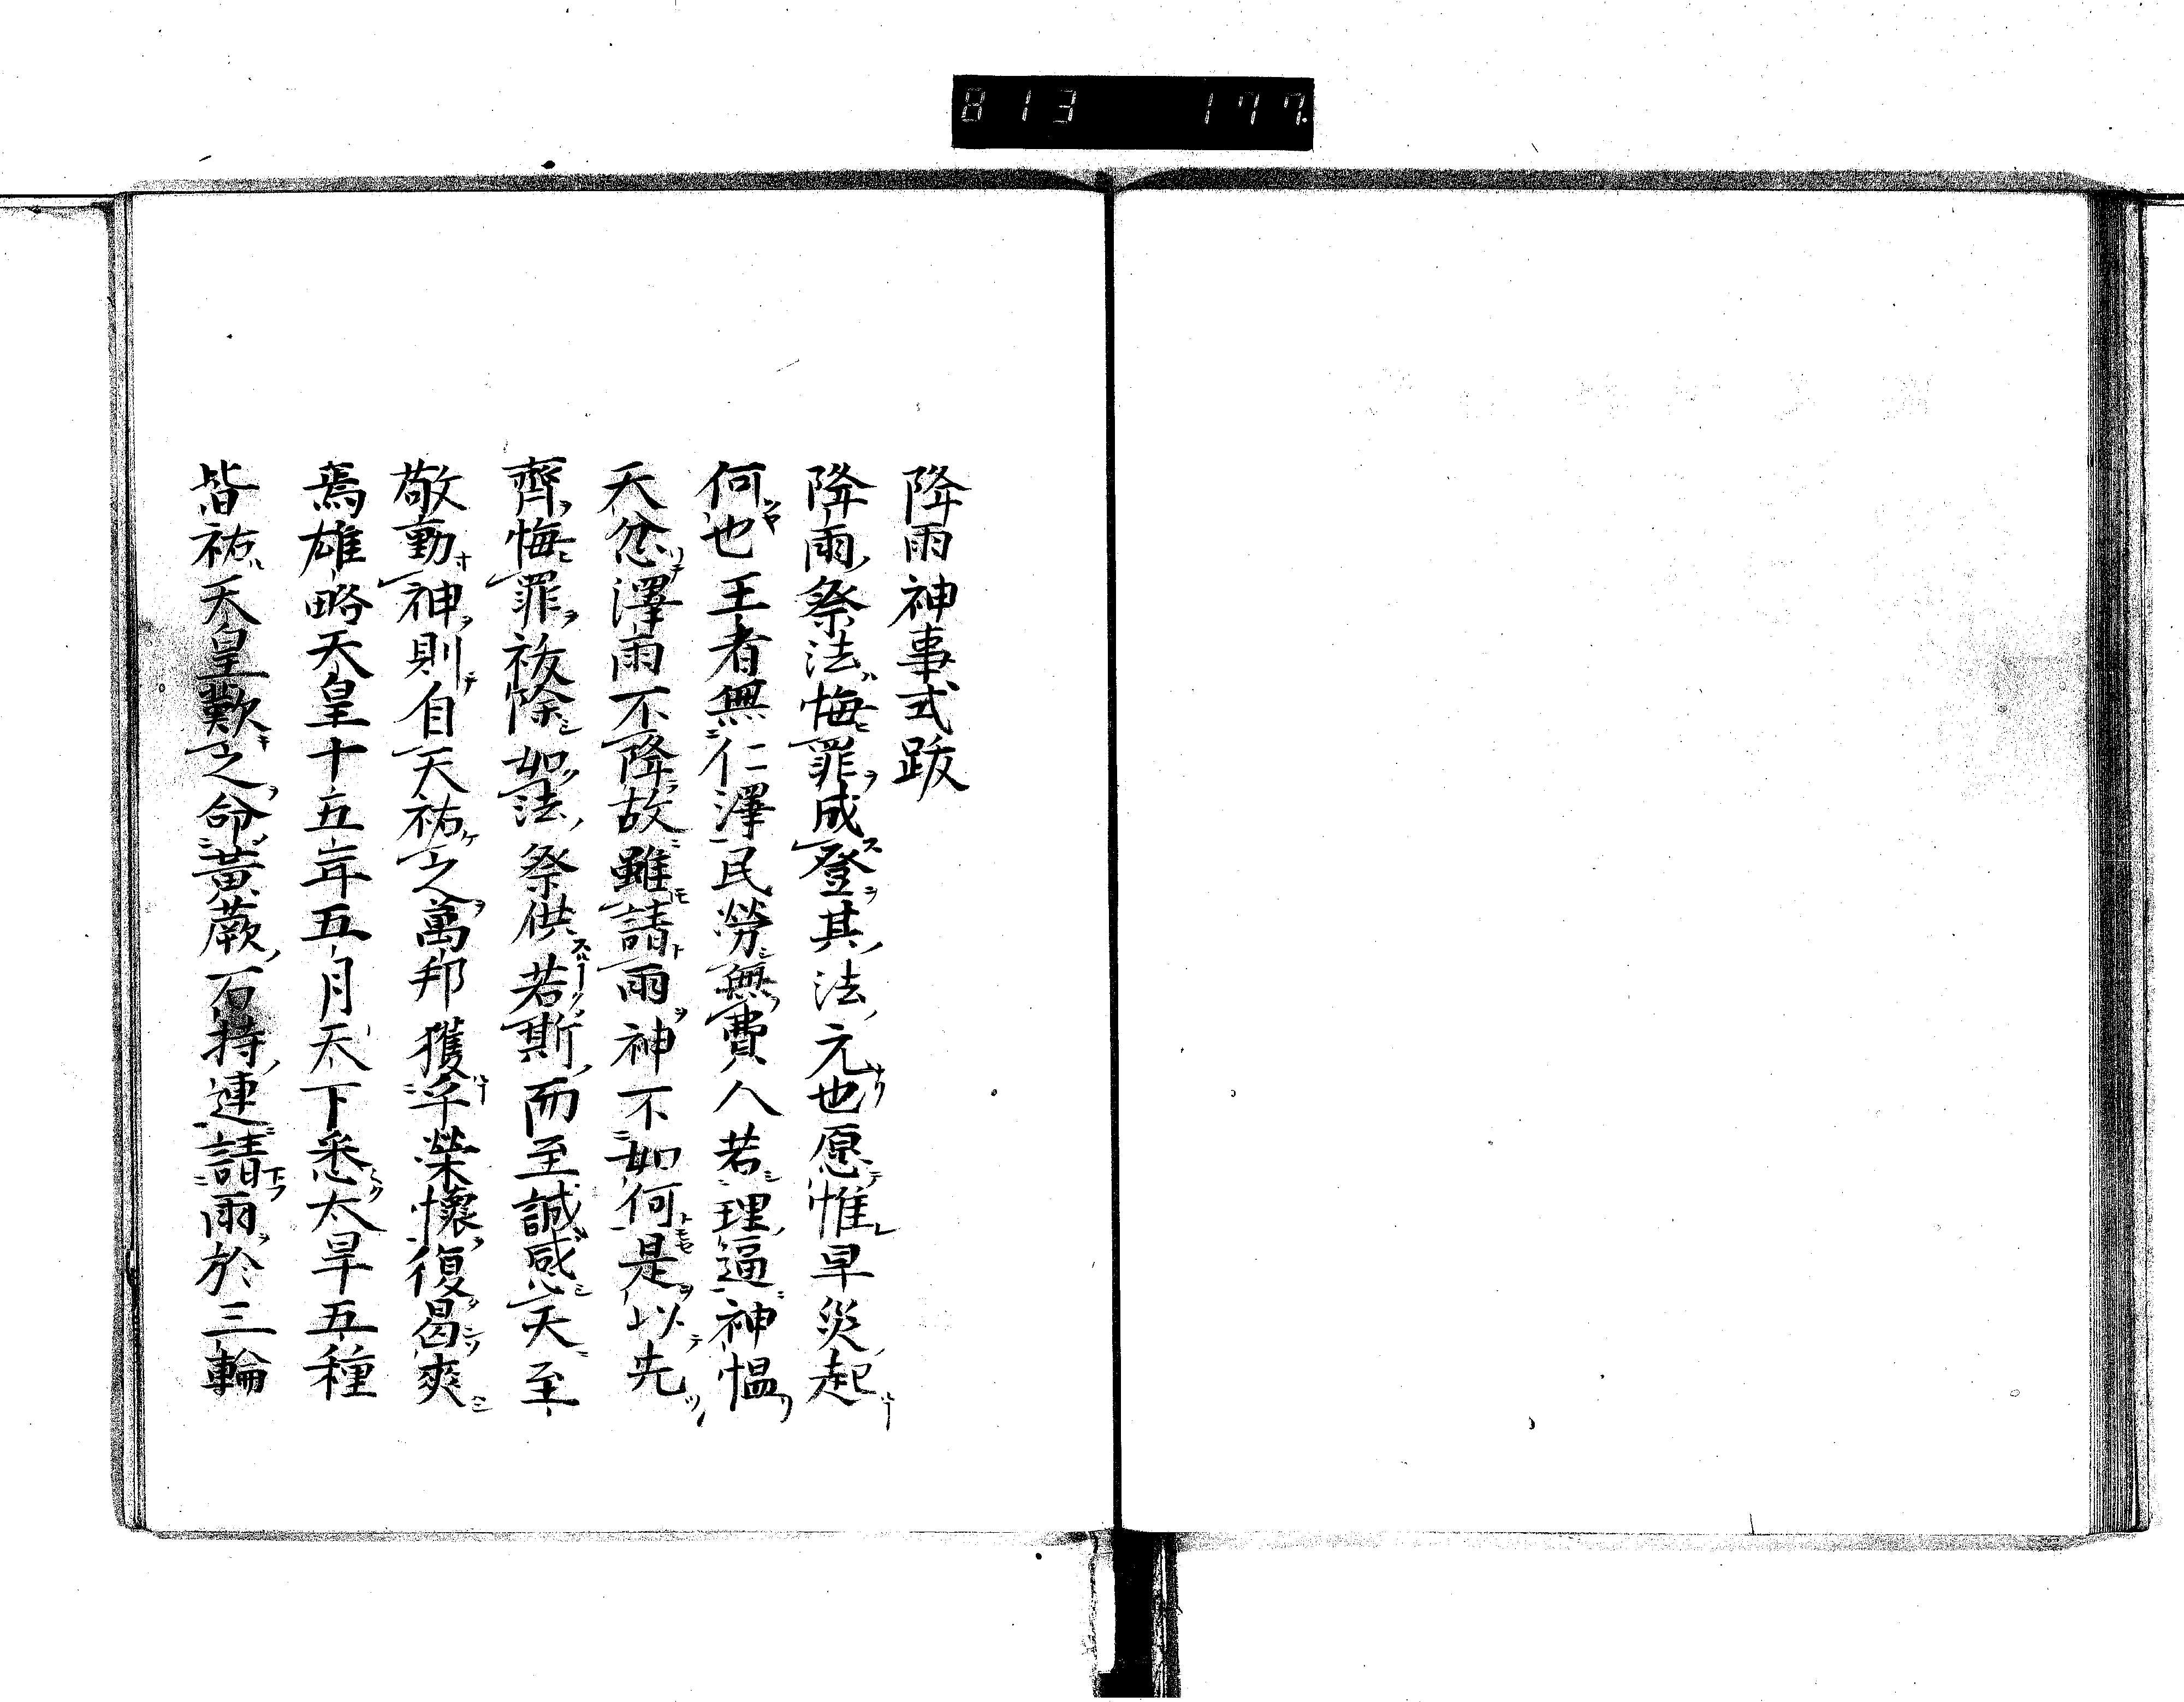 813 177.
降雨神事式跋
降雨祭法悔罪成登其法元也愿惟旱災起
何也王者無仁澤民勞無費人若理逼神慍
天忿澤雨不降故雖請雨神不如何是以先
齊悔罪祓除如法祭供若斯而至誠感天至
敬動神則自天祐之萬邦獲孚榮懷復曷爽
焉雄略天皇十五年五月天下悉大旱五種
皆祐天皇歎之命黃蕨石持連請雨於三輪